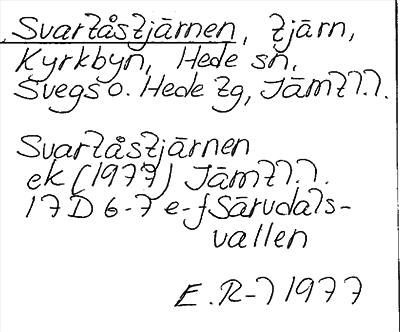 Svartåstjärnen, tjärn,
Kyrkbyn, Hede sn,
Svegs o. Hede tg, Jämtl.
Svartåstjärnen
ek (1977) Jämtl.
17D 6-7 e-f Särvdals-
vallen
E.R-71977